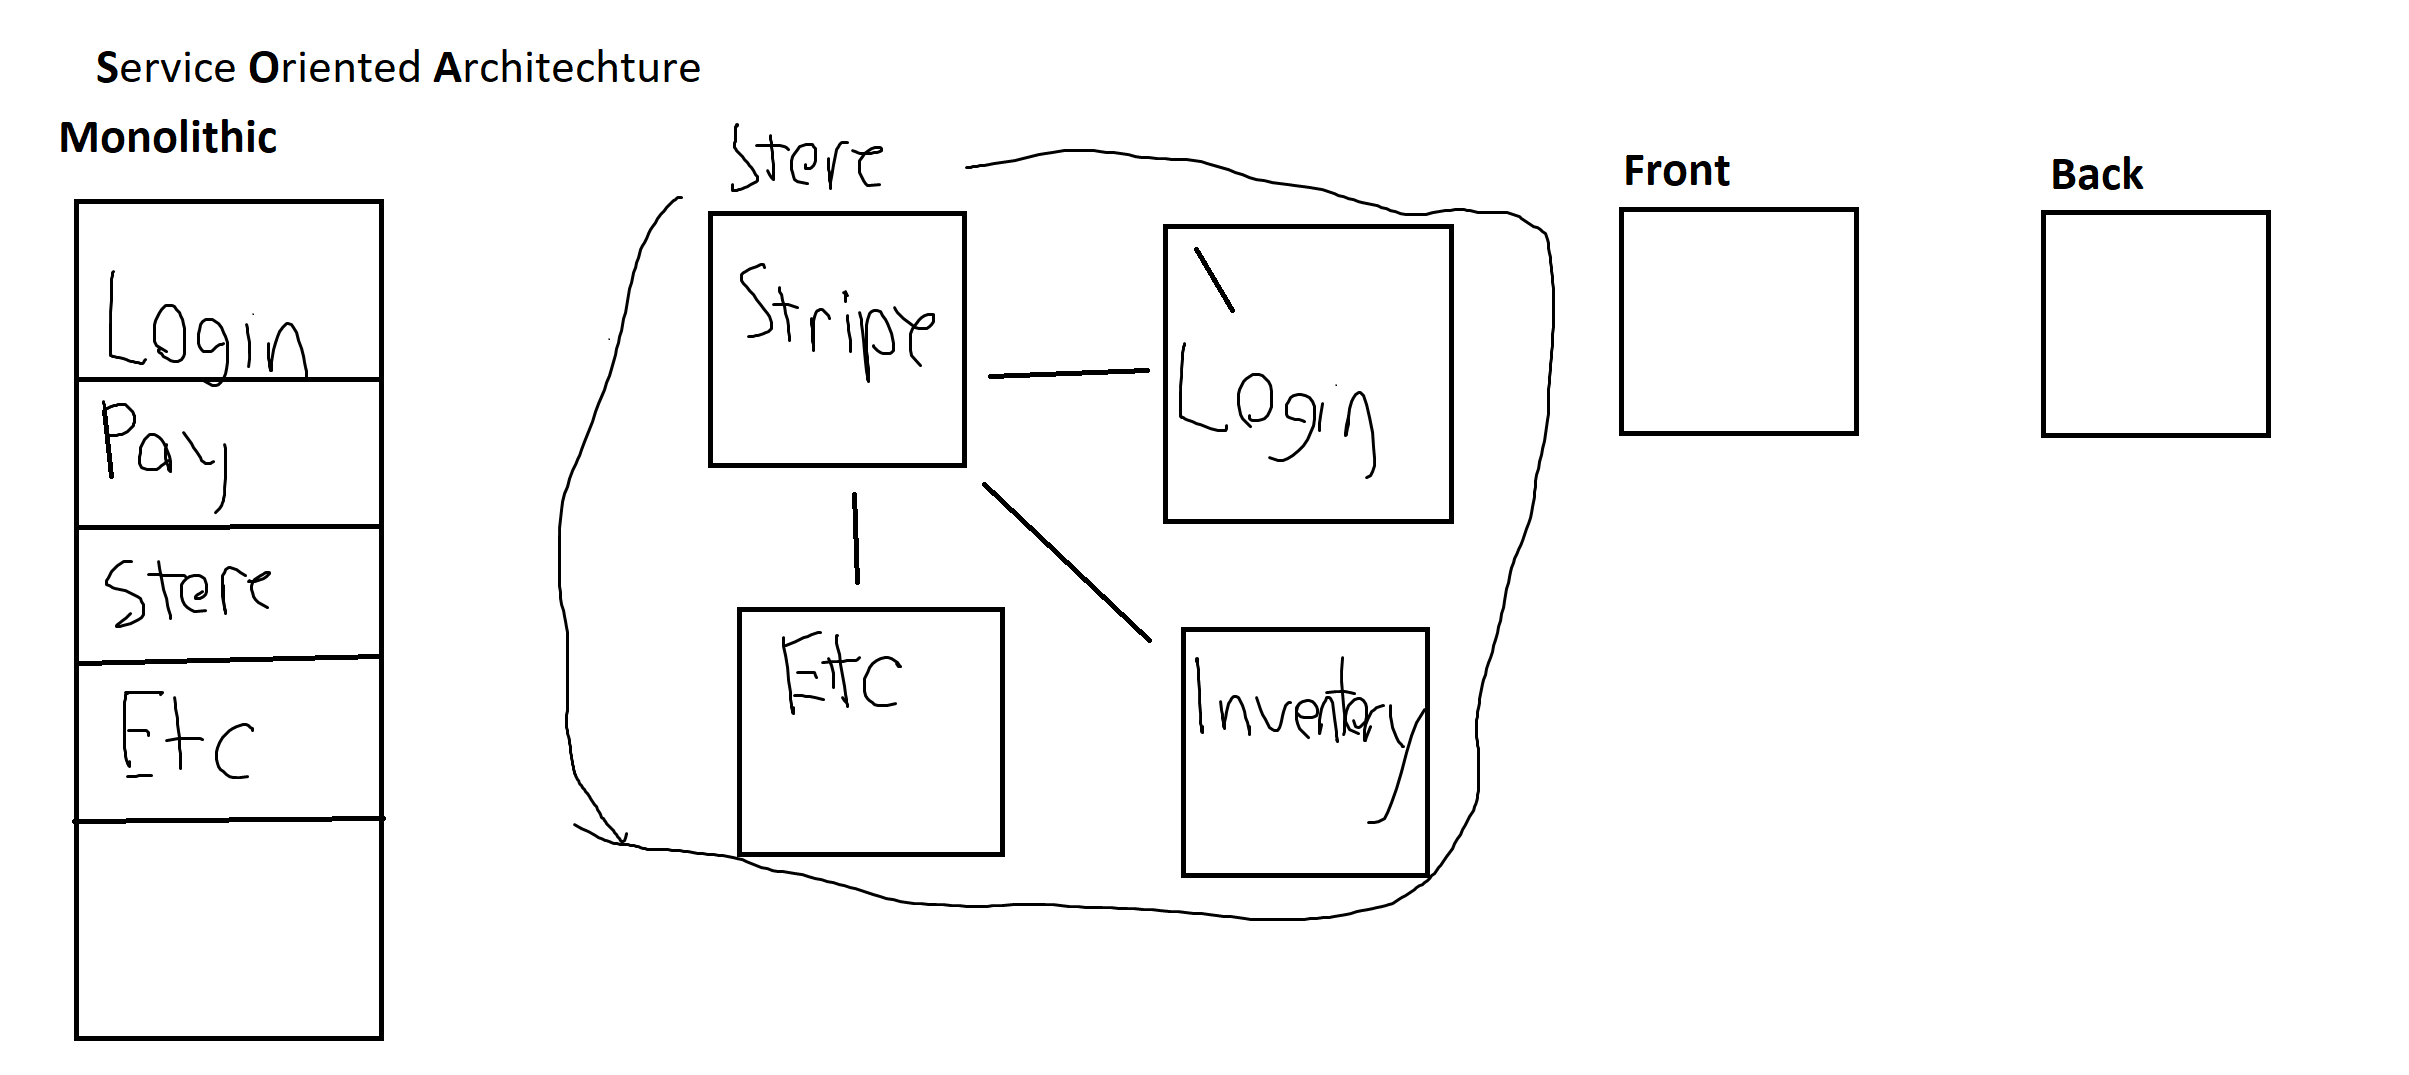 Service Oriented Architechture
Monolithic
Login
Pay
Store
Etc
Store
Stripe
Login
Etc
Inventory
Front
Back